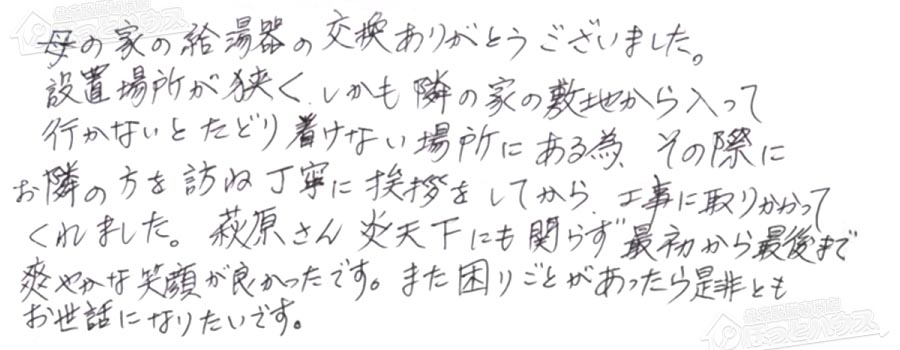 母の家の給湯器の交換ありがとうございました。
設置場所が狭く、しかも隣の家の敷地から入って
行かないとたどり着けない場所にある為、その際に
お隣の方を訪ね丁寧に挨拶をしてから、工事に取りかかって
くれました。萩原さん炎天下にも関らず最初から最後まで
爽やかな笑顔が良かったです。また困りごとがあったら是非とも
お世話になりたいです。